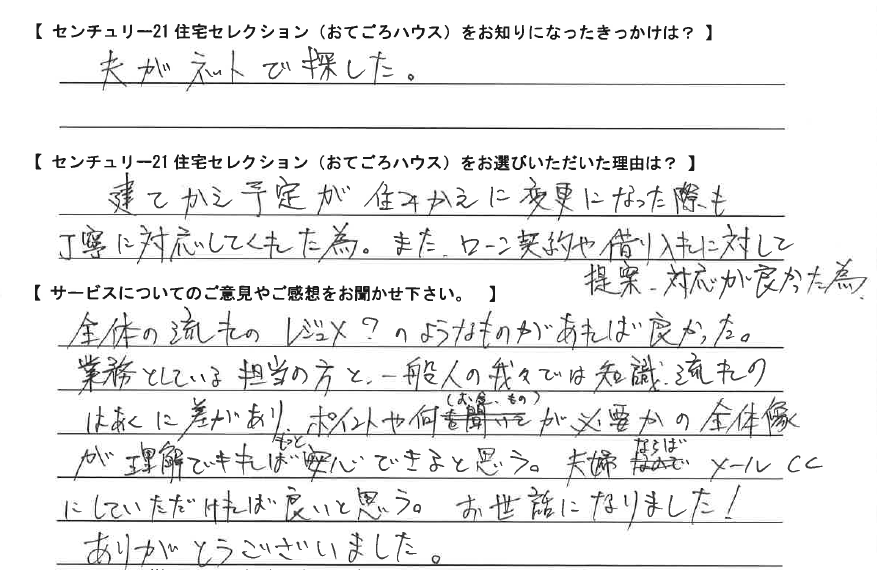 【 センチュリー21住宅セレクション（おてごろハウス）をお知りになったきっかけは？ 】
夫がネットで探した。
【 センチュリー21住宅セレクション（おてごろハウス）をお選びいただいた理由は？ 】
建てかえ予定が住みかえに変更になった際も
丁寧に対応してくれた為。また、ローン契約や借り入れに対して
提案、対応が良かった為。
【 サービスについてのご意見やご感想をお聞かせ下さい。 】
全体の流れのレジュメ？のようなものがあれば良かった。
業務としている担当の方と、一般人の我々では知識、流れの
はあくに差があり、ポイントや何(お金、もの)を聞いてが必要かの全体像
が理解できればもっと安心できると思う。夫婦ならばなので メールCC
にしていただければ良いと思う。お世話になりました！
ありがとうございました。